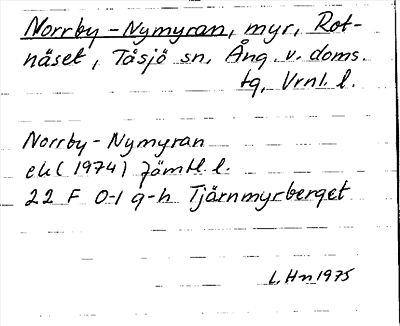 Norrby-Nymyran, myr, Rot-
näset, Tåsjö sn, Ång. v. doms.
tg, Vrnl. l.
Norrby-Nymyran
ek (1974) Jämtl. l.
22 F 0-1 g-h Tjärnmyrberget
L. Hn 1975